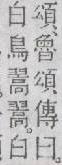 頌、魯頌傳曰。
白鳥翯翯。白